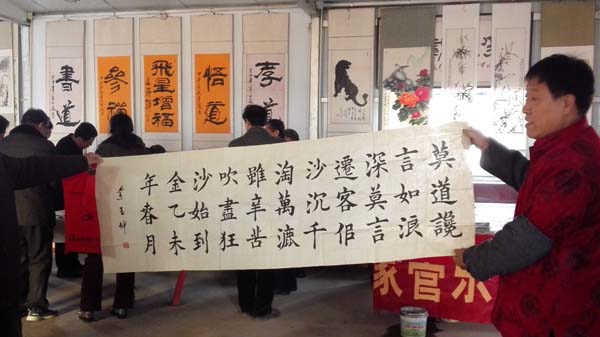 書道
參禪
飛星增福
悟道
孝道
莫道讒
言如浪
深莫言
遷客佀
沙沉千
淘萬漉
雖辛苦
吹盡狂
沙始到
金乙未
年春月
家官东